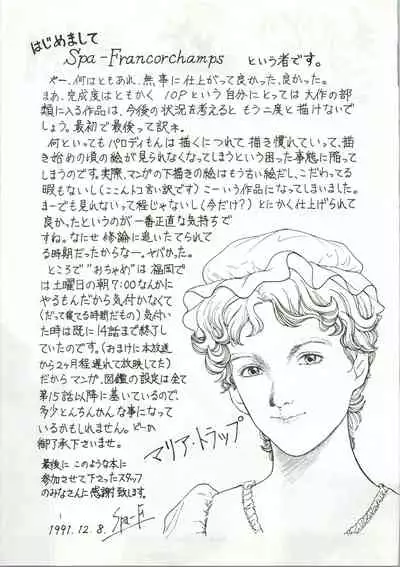 はじめまして
Spa-Francorchamps という者です。
やー、何はともあれ、無事に仕上がって良かった、良かった。
まあ、完成度はともかく 10Pという自分にとっては大作の部
類に入る作品は、今後の状況を考えると もう二度と描けないで
しょう。最初で最後って訳ネ。
何といってもパロディもんは描くにつれて、描き慣れていって、描
き始めの頃の絵が見られなくなってしまうという困った事態に陥って
しまうのです。実際、マンガの下描きの絵はもう古い絵だし、こだわってる
暇もないし(ここんトコ言い訳です)こーいう作品になってしまいました。
まーでも見れないって程じゃないし(今だけ?)とにかく仕上げられて
良かったというのが一番正直な気持ちで
すね。なにせ修論に追いたてられて
る時期だったからなー。ヤバかった。
ところで"おちゃめ"は福岡で
は土曜日の朝7:00なんかに
やるもんだから気付かなくて
(だって寝てる時間だもの)気付い
た時は既に14話まで終了し
ていたのです。(おまけに本放送
から2ヶ月程遅れて放映してた)
だからマンガ、図鑑の設定は全て
第15話以降に基いているので、
多少とんちんかんな事になって
いるかもしれません。どーか
御了承下さいませ。
最後に このような本に
参加させて下さったスタッフ
のみなさんに感謝致します。
1991.12.8. Spa-F
マリア・トラップ